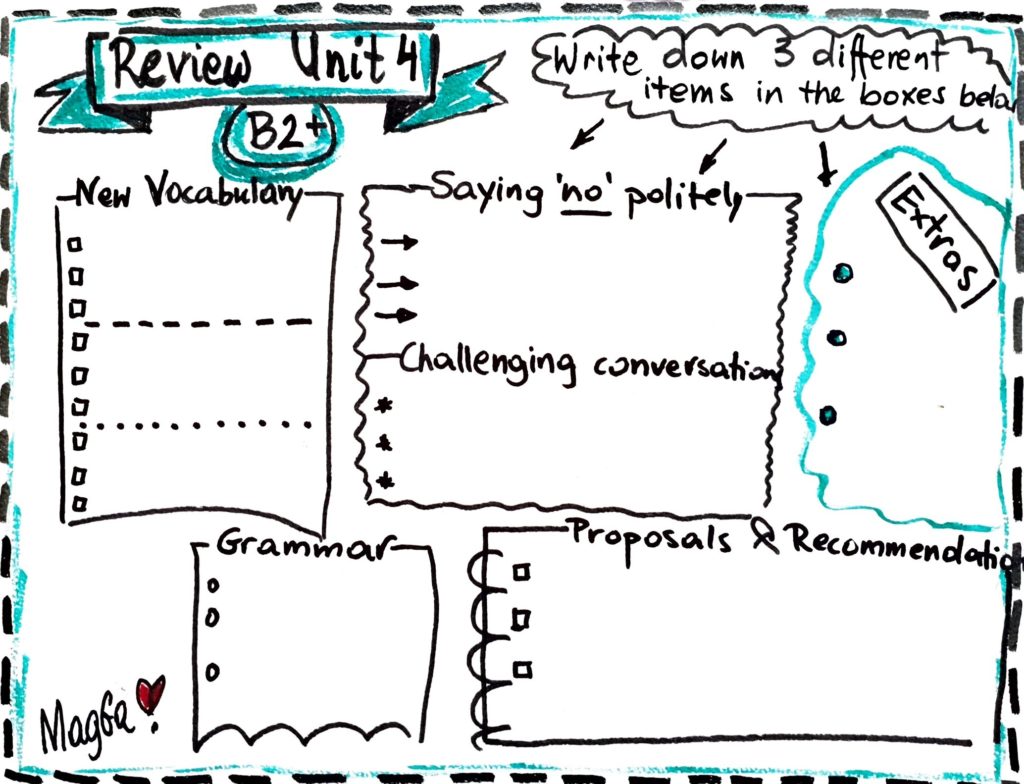 Review Unit 4
B2+
Write down 3 different
items in the boxes below
New Vocabulary
Saying 'no' politely
Challenging conversation
Extras
Grammar
Proposals & Recommendation